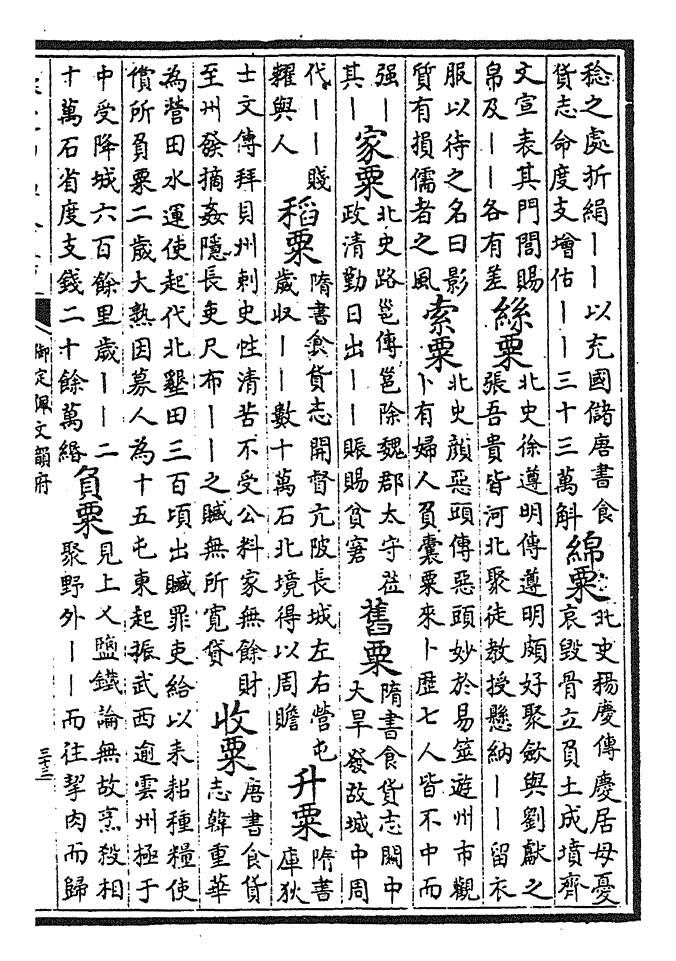 稔之處折絹——以充國儲唐書食
貨志命度支増估——三十三萬斛
綿粟
北史楊慶傳慶居母憂
哀毀骨立負土成墳齊
文宣表其門閭賜
帛及——各有差
絲粟
北史徐遵明傳遵明頗好聚歛與劉獻之
張吾貴皆河北聚徒教授懸納——留衣
服以待之名曰影
質有損儒者之風
索粟
北史顔惡頭傳惡頭妙於易筮遊州市觀
卜有婦人負囊粟來卜歴七人皆不中而
强—
其—
家粟
北史路邕傳邕除魏郡太守莅
政清勤日出——賑賜貧窘
舊粟
隋書食貨志關中
大旱發故城中周
代——賤
糴與人
稻粟
隋書食貨志開督亢陂長城左右營屯
歲收——數十萬石北境得以周贍
升粟
隋書
庫狄
士文傳拜貝州刺史性清苦不受公料家無餘財
至州發摘姦隱長吏尺布——之贓無所寛貸
收粟
唐書食貨
志韓重華
為營田水運使起代北墾田三百頃出贓罪吏給以耒耜種糧使
償所負粟二歲大熟因募人為十五屯東起振武西逾雲州極于
中受降城六百餘里歲——二
十萬石省度支錢二十餘萬緡
負粟
見上乂鹽鐵論無故烹殺相
聚野外——而往挈肉而歸
御定佩文韻府